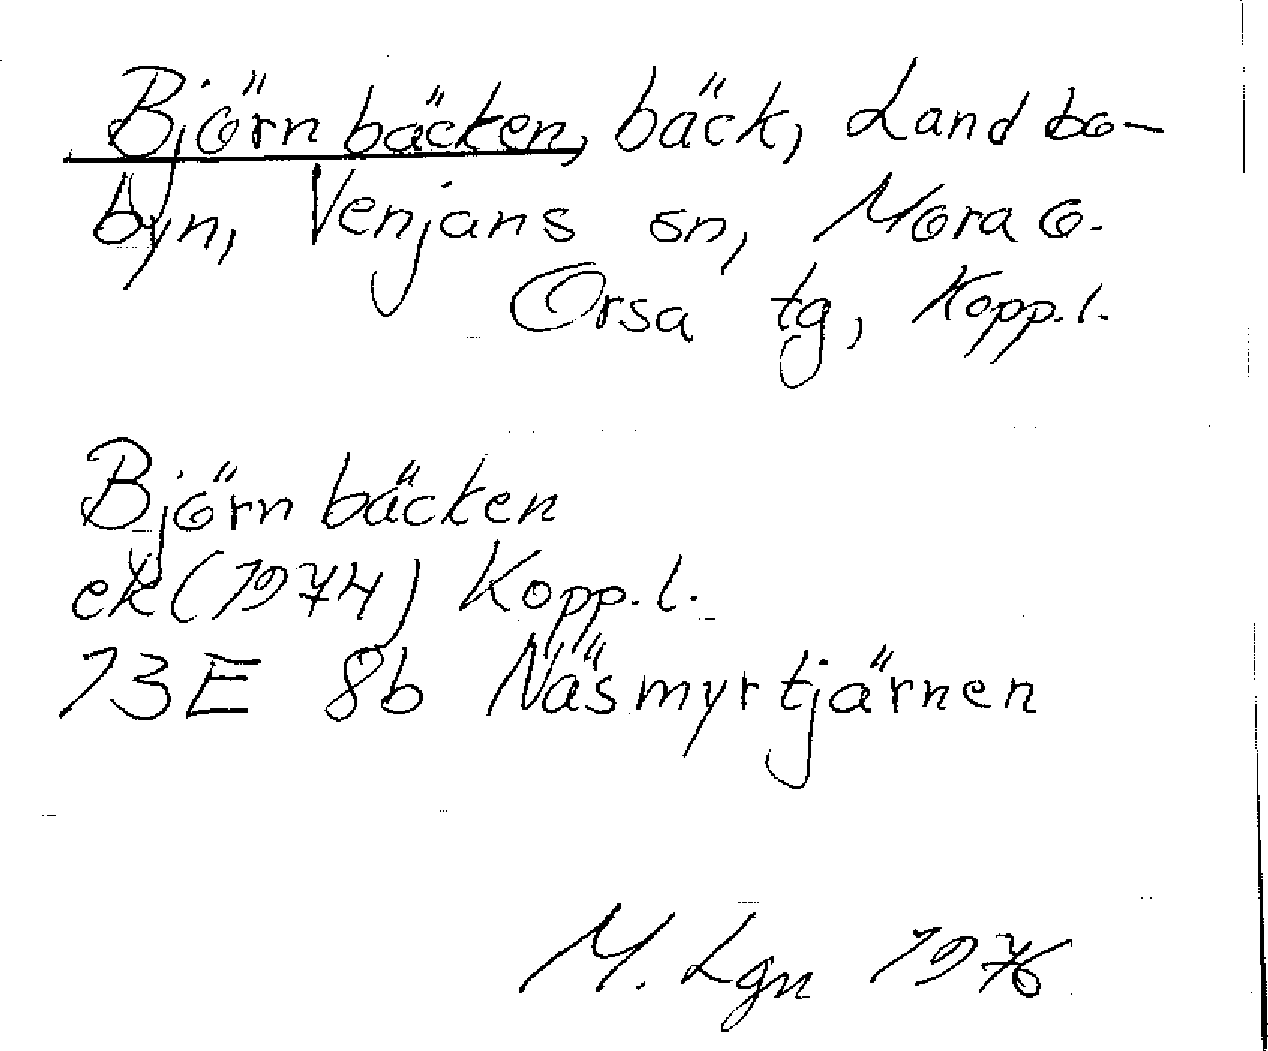 Björnbäcken, bäck, Landbo-
byn, Venjans sn, Mora o.
Orsa tg, Kopp.l.
Björnbäcken
ek(1974) Kopp.l.
13E 8b Näsmyrtjärnen
M. Lgn 1976